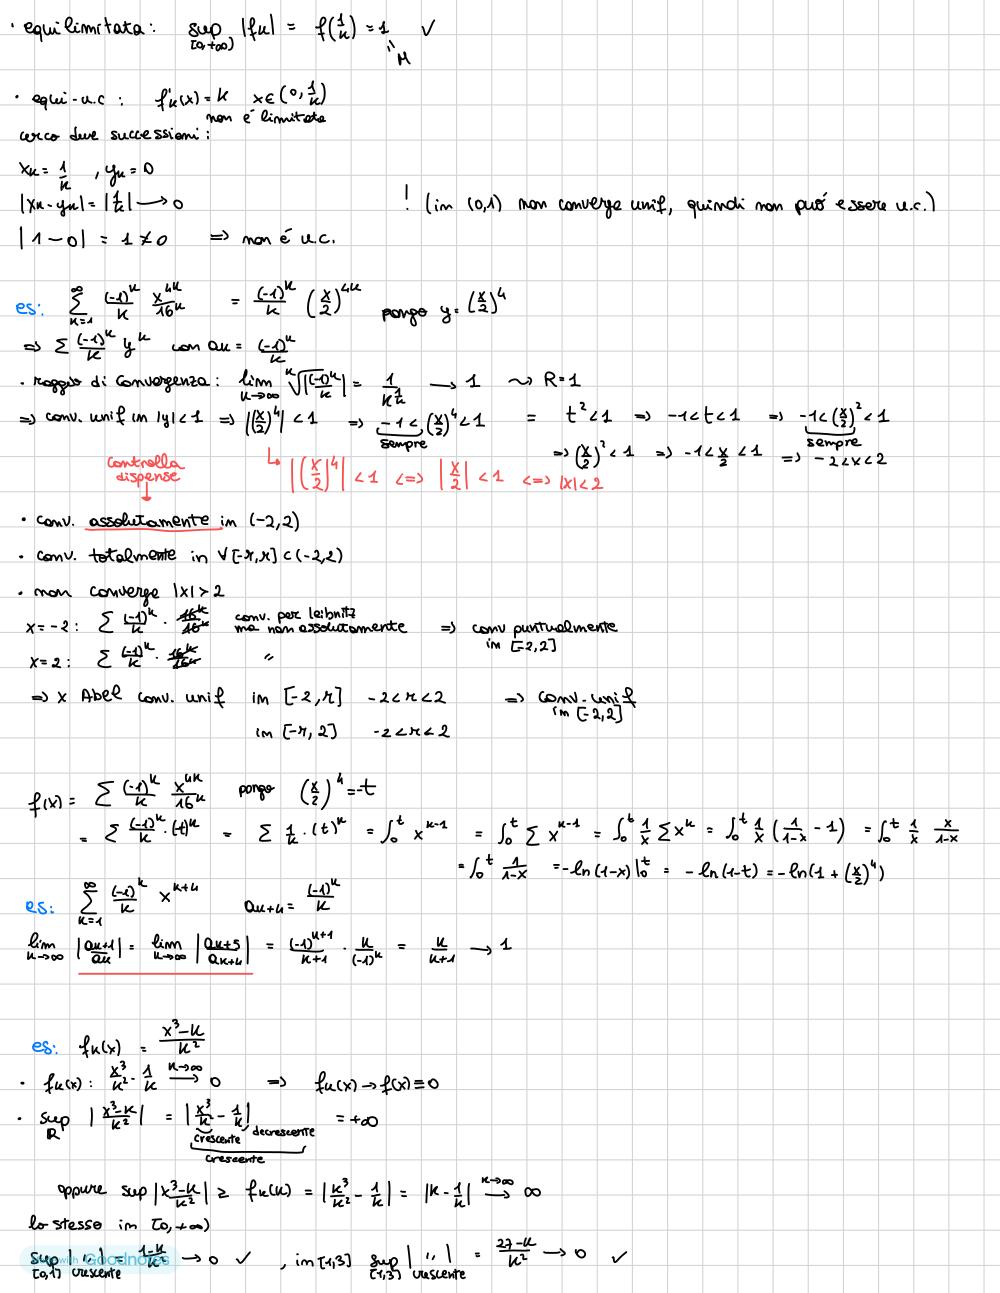 · equilimitata: sup_[0,+∞) |fk| = f(1/k) = 1 ✓
" M
· equi-u.c : f'k(x) = k x∈(0, 1/k)
non é limitata
cerco due successioni:
xk = 1/k , yk = 0
|xk - yk| = |1/k| → 0 ! (in (0,1) non converge unif, quindi non puó essere u.c.)
|1 - 0| = 1 ≠ 0 ⇒ non é u.c.
es: ∑_{k=1}^∞ (-1)^k/k x^{4k}/16^k = (-1)^k/k (x/2)^{4k} pongo y = (x/2)^4
⇒ ∑ (-1)^k/k y^k con ak = (-1)^k/k
· raggio di convergenza: lim_{k→∞} ^k√|(-1)^k/k| = 1/k^{1/k} → 1 ⤳ R = 1
⇒ conv. unif in |y|<1 ⇒ |(x/2)^4| < 1 ⇒ -1 < (x/2)^4 < 1 = t² < 1 ⇒ -1 < t < 1 ⇒ -1 < (x/2)² < 1
sempre sempre
⇒ (x/2)² < 1 ⇒ -1 < x/2 < 1 ⇒ -2 < x < 2
Controlla dispense ↳ |(x/2)^4| < 1 <=> |x/2| < 1 <=> |x| < 2
· conv. assolutamente in (-2,2)
· conv. totalmente in ∀[-r,r] ⊂ (-2,2)
· non converge |x| > 2
x = -2 : ∑ (-1)^k/k · 16^k/16^k conv. per leibnitz ma non assolutamente ⇒ conv puntualmente in [-2,2]
x = 2 : ∑ (-1)^k/k · 16^k/16^k "
⇒ x Abel conv. unif in [-2,r] -2<r<2 ⇒ conv. unif in [-2,2]
in [-r,2] -2<r<2
f(x) = ∑ (-1)^k/k x^{4k}/16^k pongo (x/2)^4 = -t
= ∑ (-1)^k/k · (-t)^k = ∑ 1/k · (t)^k = ∫₀^t x^{k-1} = ∫₀^t ∑ x^{k-1} = ∫₀^t 1/x ∑ x^k = ∫₀^t 1/x (1/(1-x) - 1) = ∫₀^t 1/x x/(1-x)
= ∫₀^t 1/(1-x) = -ln(1-x)|₀^t = -ln(1-t) = -ln(1+(x/2)^4)
es: ∑_{k=1}^∞ (-1)^k/k x^{k+4} a_{k+4} = (-1)^k/k
lim_{k→∞} |a_{k+1}/a_k| = lim_{k→∞} |a_{k+5}/a_{k+4}| = (-1)^{k+1}/(k+1) · k/(-1)^k = k/(k+1) → 1
es: fk(x) = (x³-k)/k²
· fk(x) : x³/k² - 1/k →^{k→∞} 0 ⇒ fk(x) → f(x) ≡ 0
· sup_ℝ |(x³-k)/k²| = |x³/k² - 1/k| = +∞
crescente decrescente
crescente
oppure sup |(x³-k)/k²| ≥ fk(k) = |k³/k² - 1/k| = |k - 1/k| →^{k→∞} ∞
lo stesso in [0,+∞)
sup_[0,1] | " | = (1-k)/k² → 0 ✓ , in [1,3] sup_[1,3] | " | = (27-k)/k² → 0 ✓
crescente crescente
Made with Goodnotes